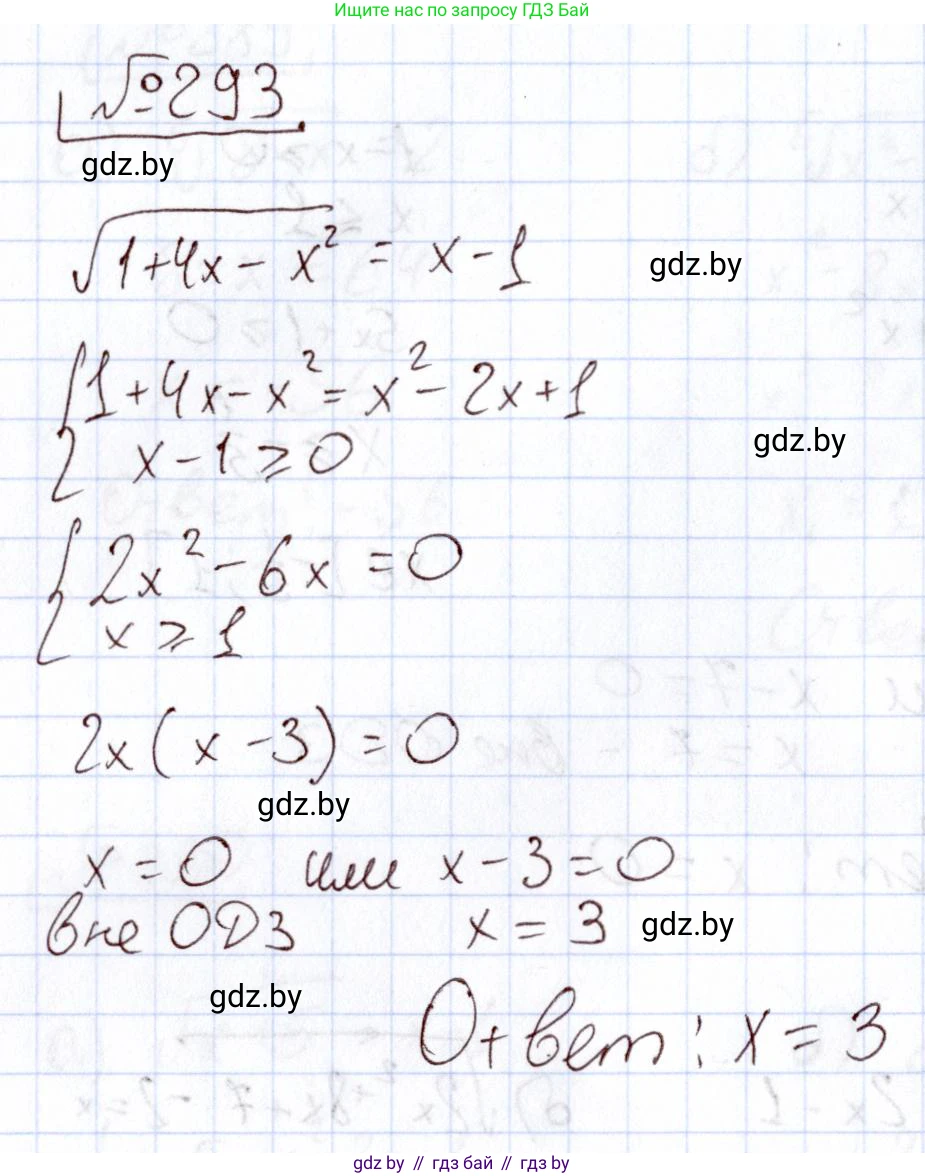 Ищите нас по запросу ГДЗ Бай
№293
gdz.by
√(1+4x-x²) = x-1
gdz.by
{1+4x-x² = x²-2x+1
gdz.by
x-1≥0
{2x²-6x=0
x≥1
2x(x-3)=0
gdz.by
x=0 или x-3=0
вне ОДЗ x=3 gdz.by
gdz.by
Ответ: x=3
gdz.by // гдз бай // гдз by